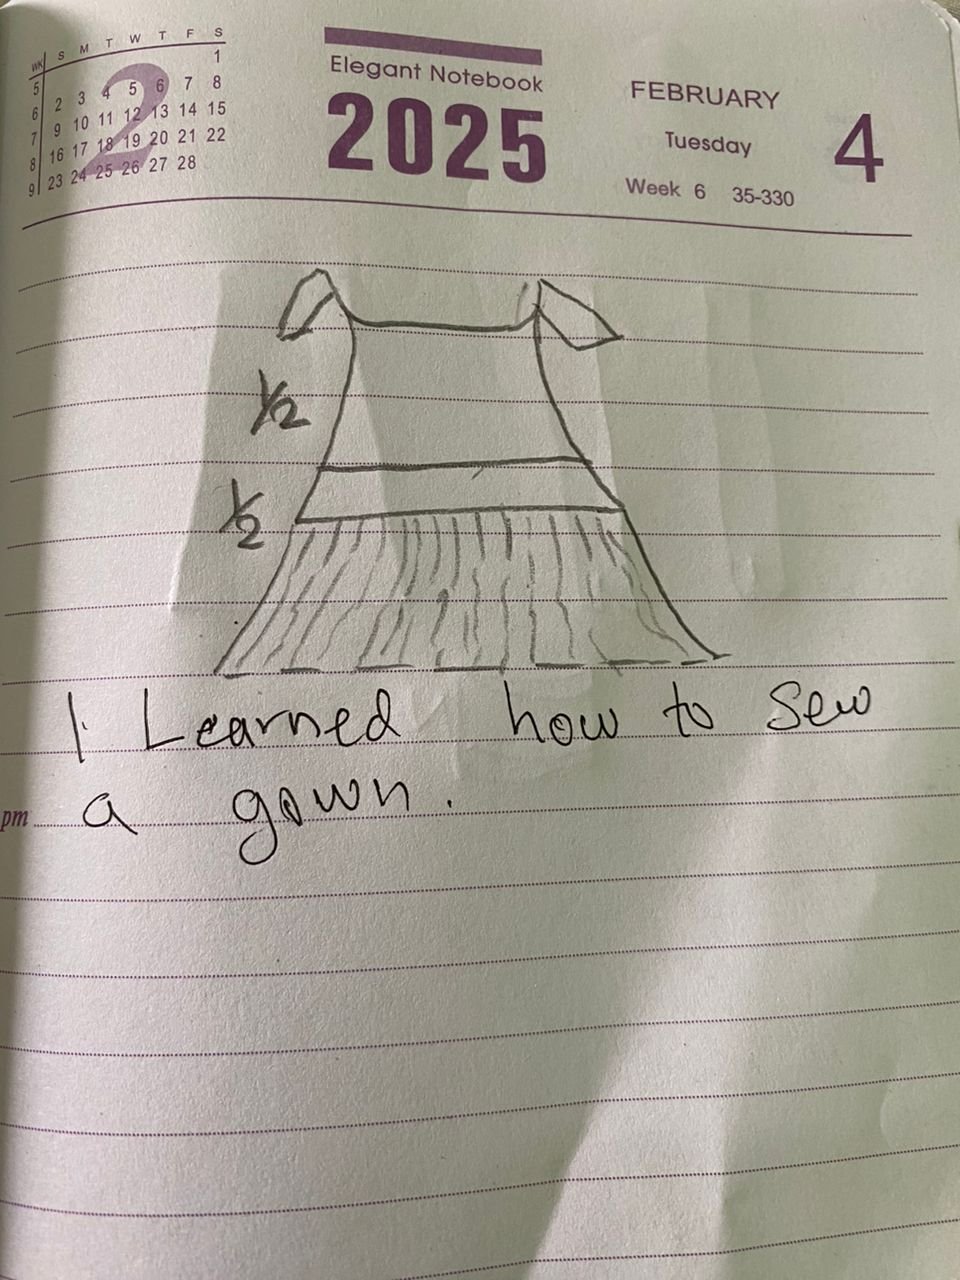 WK S M T W T F S
5 1
6 2 3 4 5 6 7 8
7 9 10 11 12 13 14 15
8 16 17 18 19 20 21 22
9 23 24 25 26 27 28
2
Elegant Notebook
2025
FEBRUARY
Tuesday
Week 6 35-330
4
1/2
1/2
I Learned how to Sew
pm a gown.